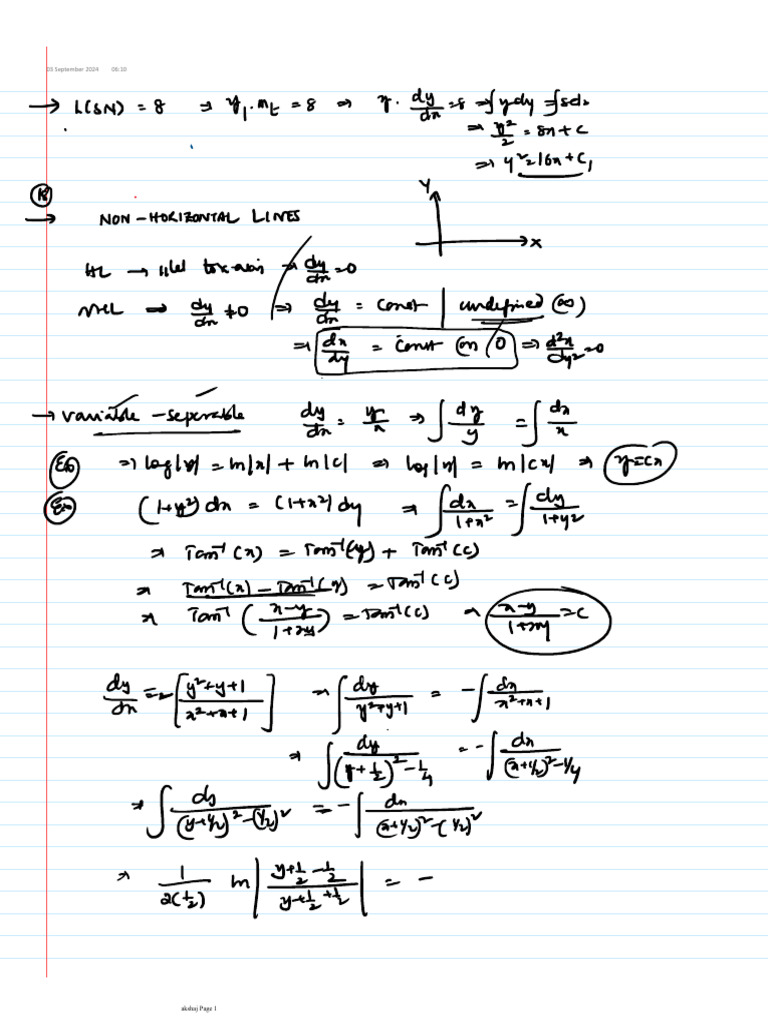 03 September 2024 06:10
→ L(SN) = 8 ⇒ y₁·m_t = 8 ⇒ y · dy/dx = 8 ⇒ ∫y dy = ∫8dx
⇒ y²/2 = 8x + c
⇒ y² = 16x + C₁
→ NON-HORIZONTAL LINES
Y
X
HL → ||lel to x-axis → dy/dx = 0
NHL ⇒ dy/dx ≠ 0 ⇒ dy/dx = const | undefined (∞)
⇒ dx/dy = const (or) 0 ⇒ d²x/dy² = 0
→ variable - seperable dy/dx = y/x ⇒ ∫dy/y = ∫dx/x
Ex ⇒ log|y| = ln|x| + ln|c| ⇒ log|y| = ln|cx| ⇒ y = cx
Ex (1+y²)dx = (1+x²)dy ⇒ ∫dx/(1+x²) = ∫dy/(1+y²)
⇒ Tan⁻¹(x) = Tan⁻¹(y) + Tan⁻¹(c)
⇒ Tan⁻¹(x) - Tan⁻¹(y) = Tan⁻¹(c)
⇒ Tan⁻¹((x-y)/(1+xy)) = Tan⁻¹(c) ⇒ (x-y)/(1+xy) = c
dy/dx = -[(y²+y+1)/(x²+x+1)] ⇒ ∫dy/(y²+y+1) = -∫dx/(x²+x+1)
⇒ ∫dy/((y+1/2)² - 1/4) = -∫dx/((x+1/2)² - 1/4)
⇒ ∫dy/((y+1/2)² - (1/2)²) = -∫dx/((x+1/2)² - (1/2)²)
⇒ 1/(2(1/2)) ln|(y+1/2-1/2)/(y+1/2+1/2)| = -
akshaj Page 1